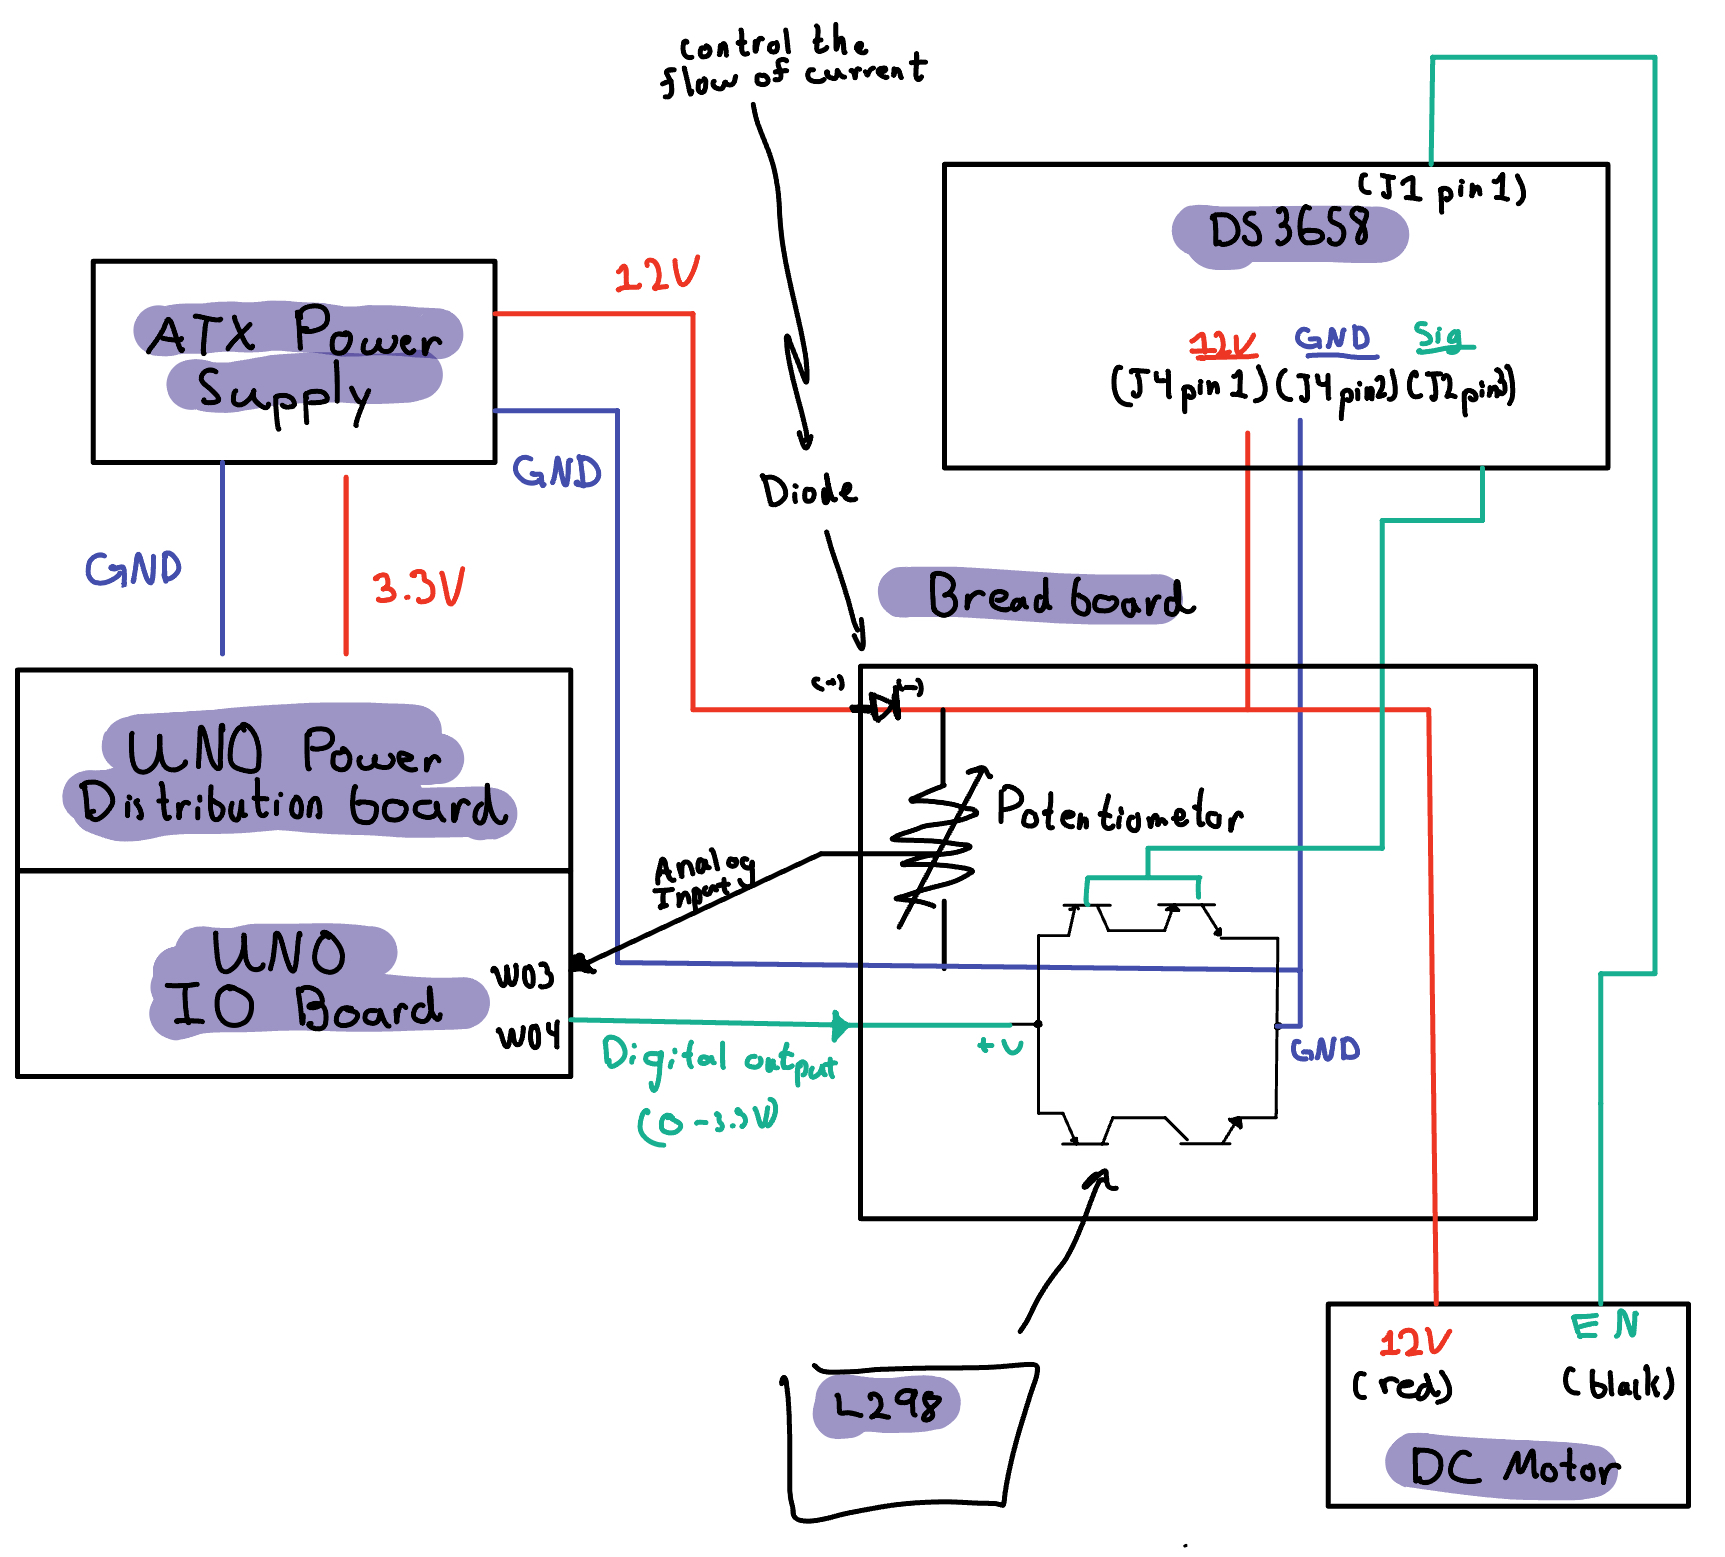 control the
flow of current
(J1 pin 1)
DS3658
12V
GND
Sig
(J4 pin 1)
(J4 pin2)
(J2 pin3)
ATX Power
Supply
12V
GND
GND
3.3V
Diode
Bread board
(+)
(-)
UNO Power
Distribution board
Potentiometor
Analog
Input
UNO
IO Board
W03
W04
Digital output
(0-3.3V)
+V
GND
L298
12V
(red)
EN
(black)
DC Motor